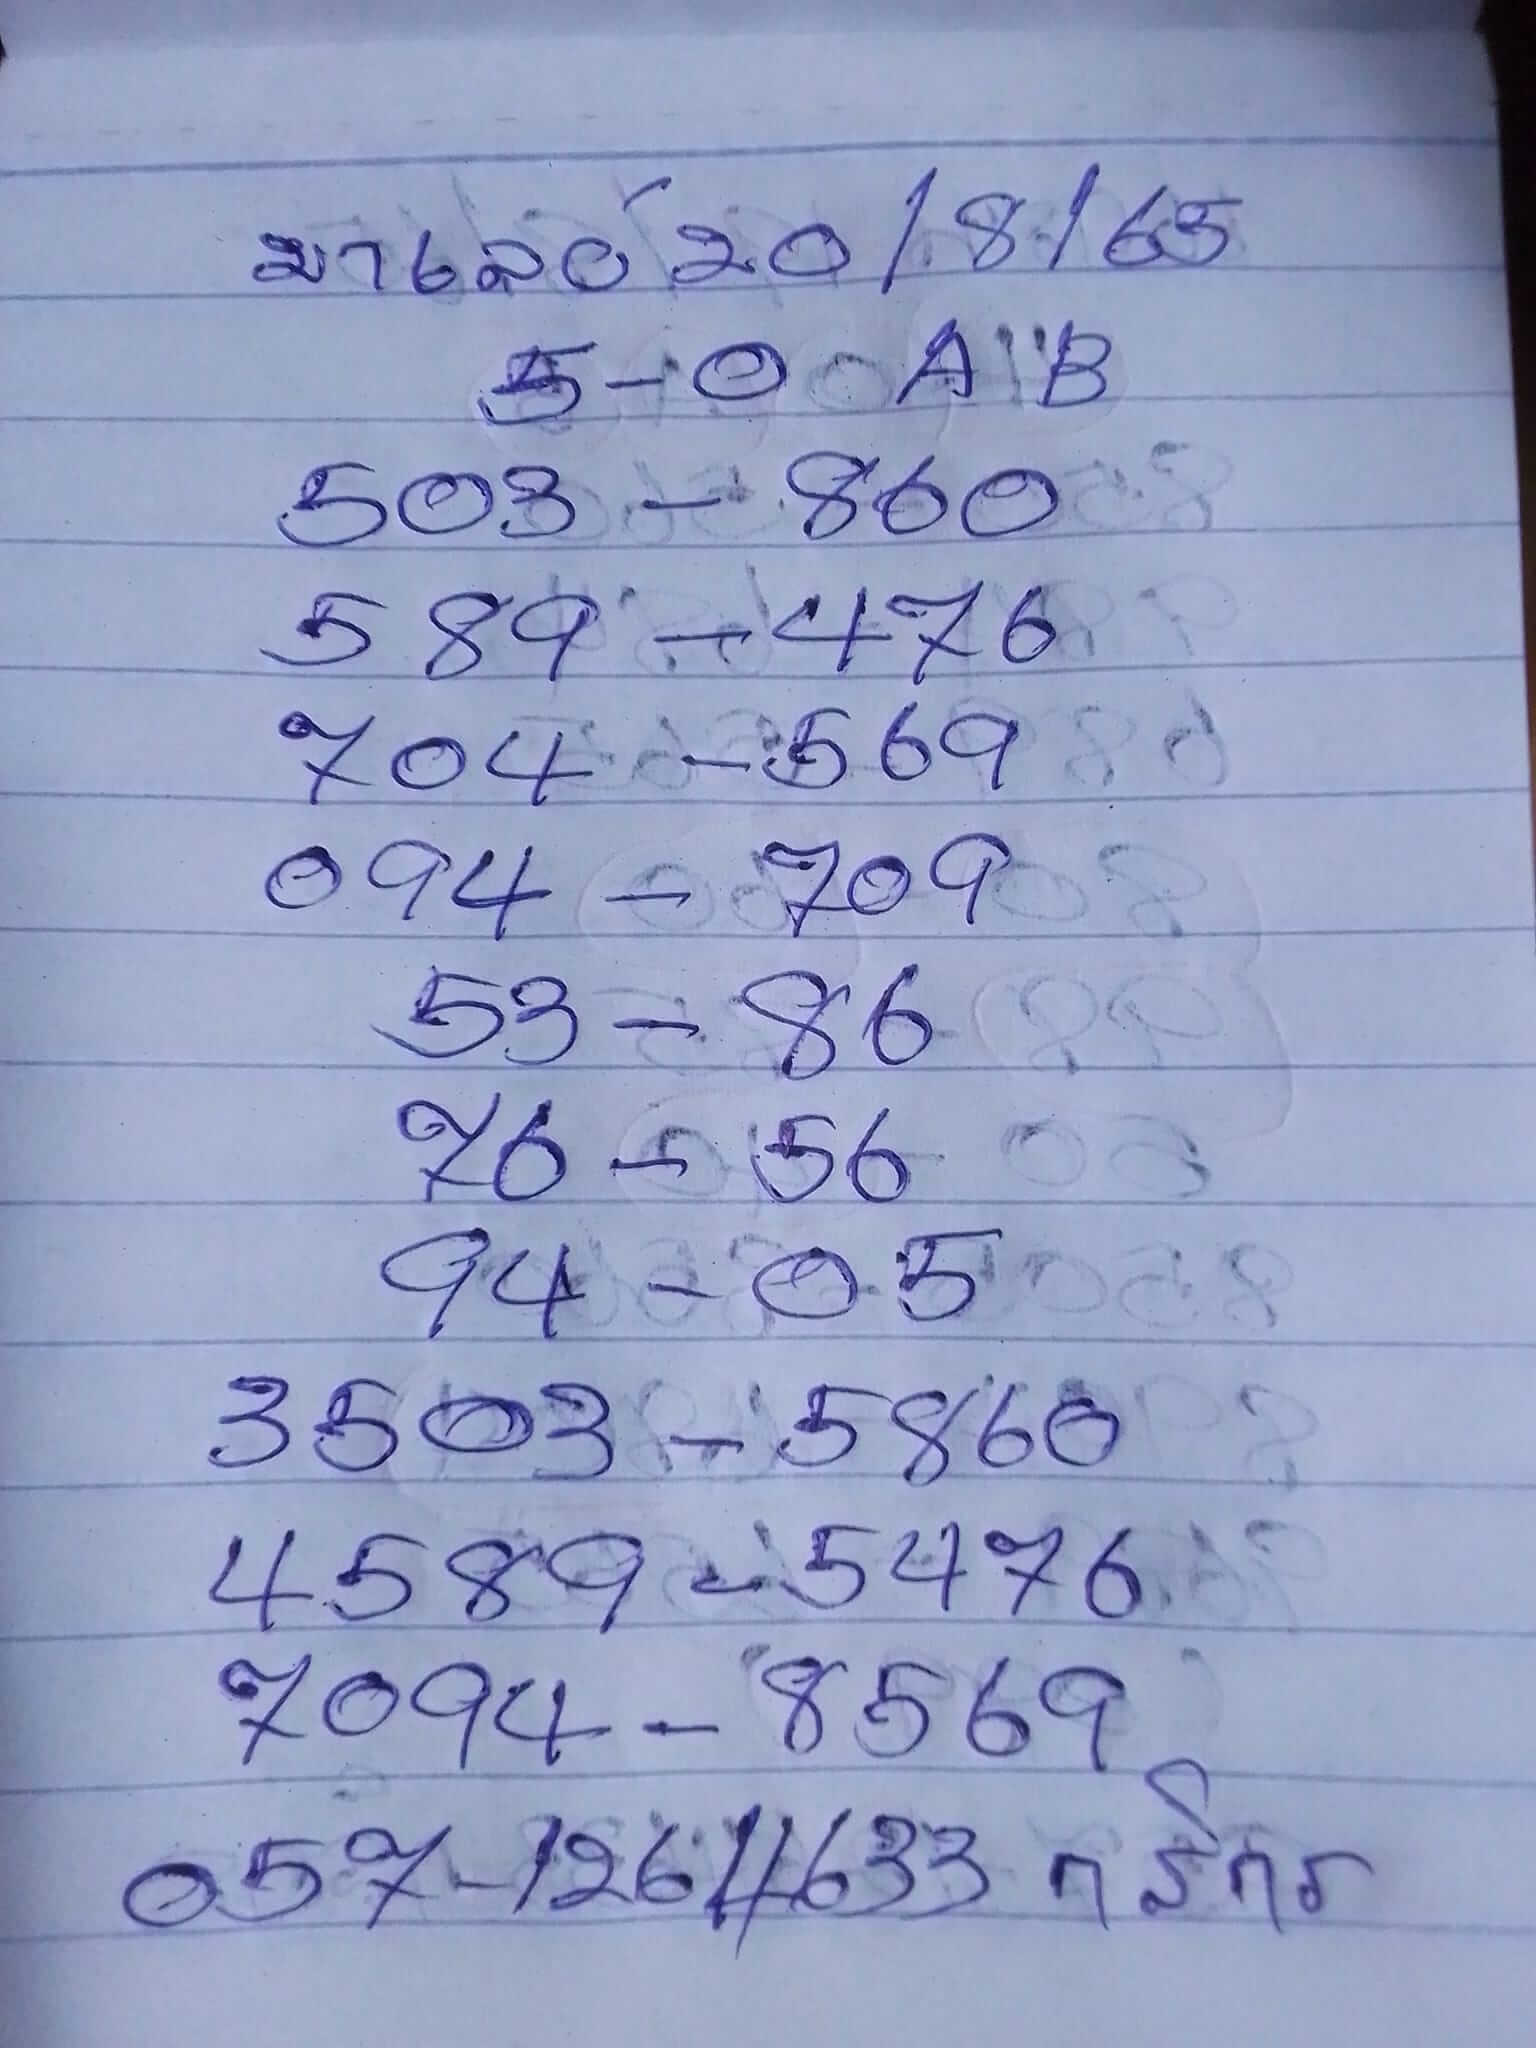 มาเลย์ 20/8/65
5-0 AB
503 - 860
589 - 476
704 - 569
094 - 709
53 - 86
76 - 56
94 - 05
3503 - 5860
4589 - 5476
7094 - 8569
057-1261//633